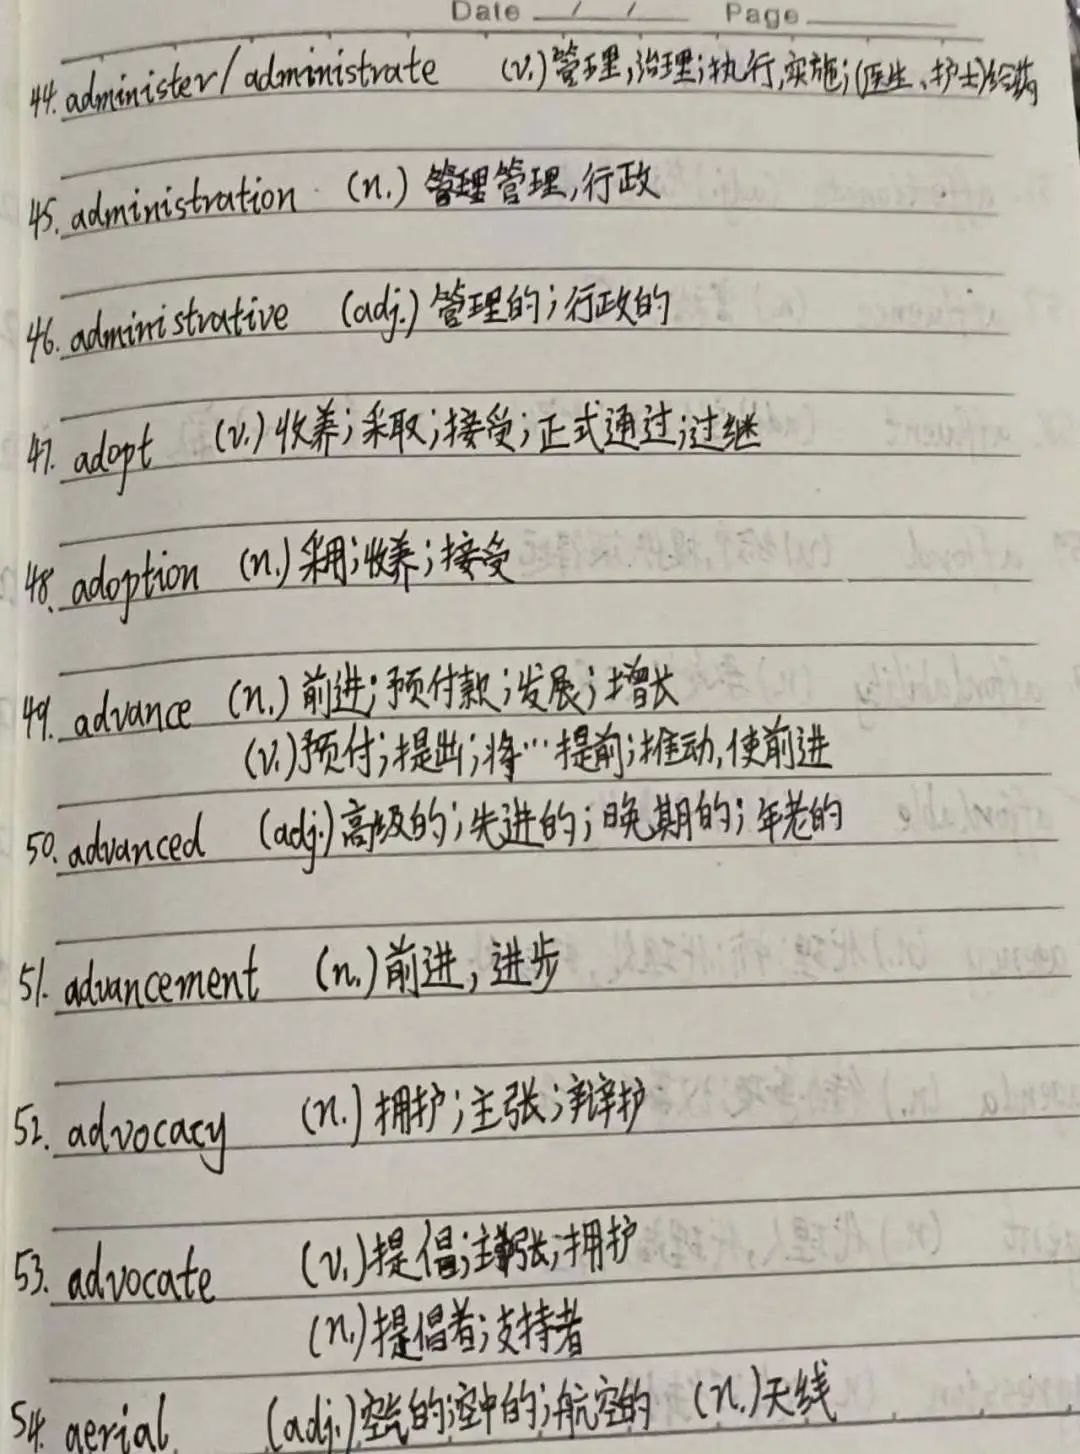 Date / / Page
44. administer/administrate (v.)管理,治理;执行,实施;(医生、护士)给药
45. administration (n.) 管理管理,行政
46. administrative (adj.) 管理的;行政的
47. adopt (v.) 收养;采取;接受;正式通过;过继
48. adoption (n.) 采用;收养;接受
49. advance (n.) 前进;预付款;发展;增长
(v.)预付;提出;将…提前;推动,使前进
50. advanced (adj.)高级的;先进的;晚期的;年老的
51. advancement (n.)前进,进步
52. advocacy (n.) 拥护;主张;辩护
53. advocate (v.)提倡;主张;拥护
(n.)提倡者;支持者
54. aerial (adj.)空气的;空中的;航空的 (n.)天线